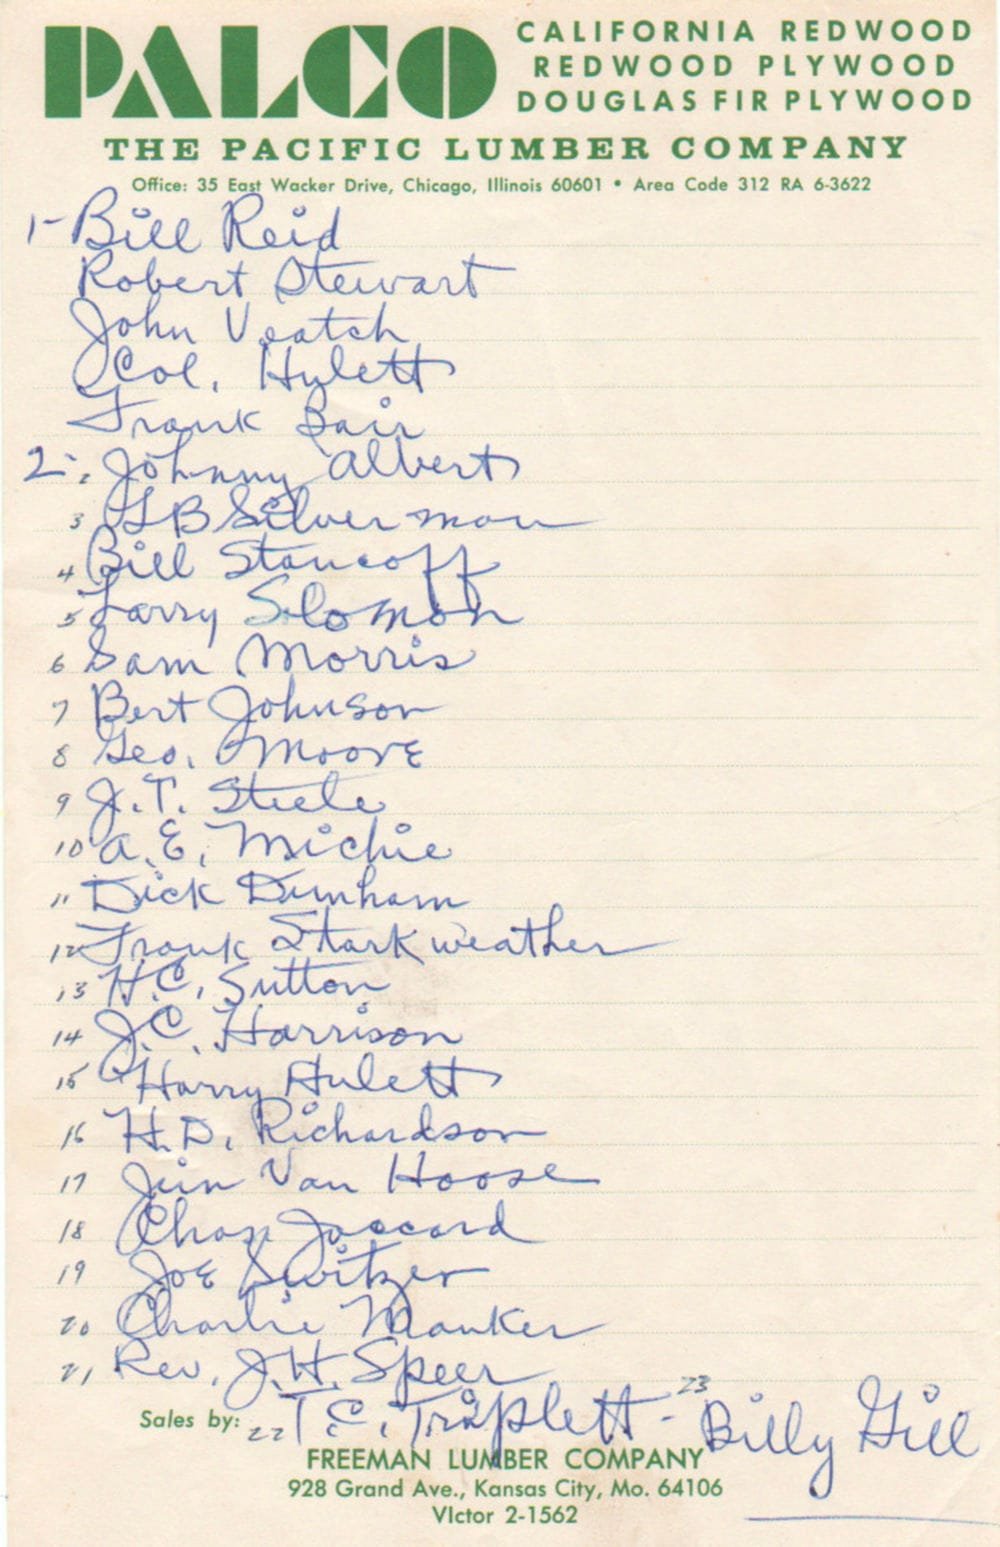 PALCO
CALIFORNIA REDWOOD
REDWOOD PLYWOOD
DOUGLAS FIR PLYWOOD
THE PACIFIC LUMBER COMPANY
Office: 35 East Wacker Drive, Chicago, Illinois 60601 • Area Code 312 RA 6-3622
1- Bill Reid
Robert Stewart
John Veatch
Col. Hulett
Frank Bair
2- 2 Johnny Albert
3 GB Silverman
4 Bill Stancoff
5 Larry Solomon
6 Sam Morris
7 Bert Johnson
8 Geo. Moore
9 J.T. Steele
10 A.E. Michie
11 Dick Dunham
12 Frank Starkweather
13 H.C. Sutton
14 J.C. Harrison
15 Harry Hulett
16 H.D. Richardson
17 Jim Van Hoose
18 Chas Jaccard
19 Joe Switzer
20 Charlie Manker
21 Rev. J.H. Speer
Sales by: 22 T.C. Triplett - 23 Billy Gill
FREEMAN LUMBER COMPANY
928 Grand Ave., Kansas City, Mo. 64106
VIctor 2-1562